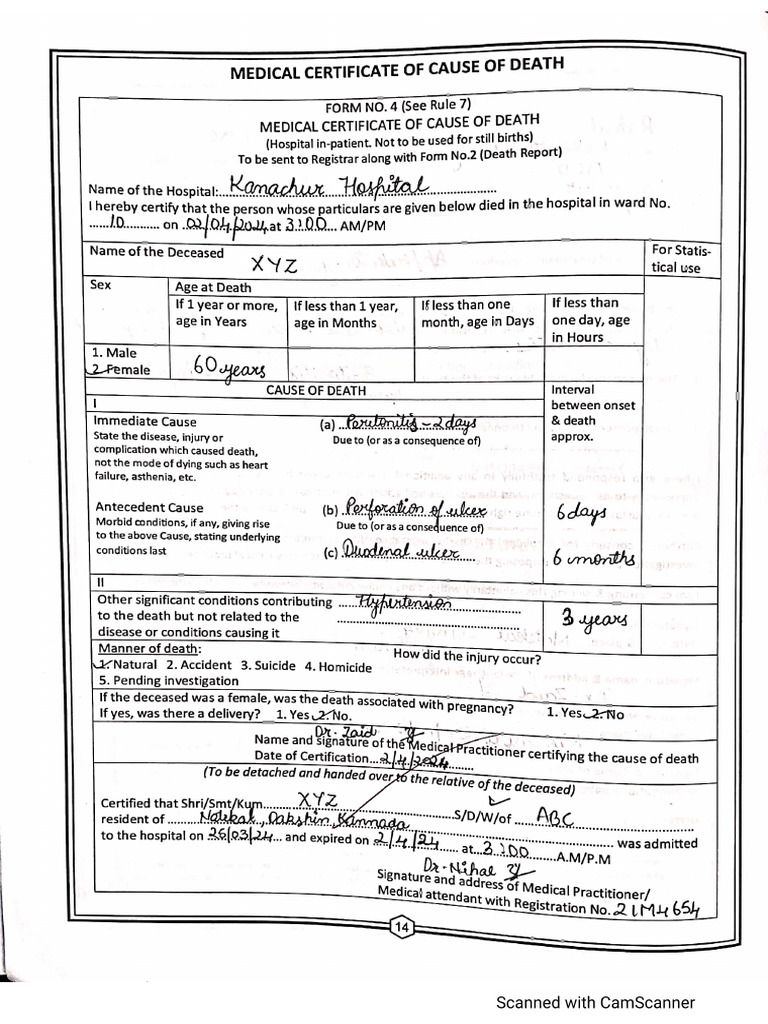 MEDICAL CERTIFICATE OF CAUSE OF DEATH
FORM NO. 4 (See Rule 7)
MEDICAL CERTIFICATE OF CAUSE OF DEATH
(Hospital in-patient. Not to be used for still births)
To be sent to Registrar along with Form No.2 (Death Report)
Name of the Hospital: Kanachur Hospital
I hereby certify that the person whose particulars are given below died in the hospital in ward No.
10 on 02/04/2024 at 3:00 AM/PM
Name of the Deceased XYZ
For Statis-
tical use
Sex
Age at Death
If 1 year or more,
age in Years
If less than 1 year,
age in Months
If less than one
month, age in Days
If less than
one day, age
in Hours
1. Male
2. Female
60 years
CAUSE OF DEATH
Interval
between onset
& death
approx.
I
Immediate Cause
State the disease, injury or
complication which caused death,
not the mode of dying such as heart
failure, asthenia, etc.
(a) Peritonitis - 2 days
Due to (or as a consequence of)
Antecedent Cause
Morbid conditions, if any, giving rise
to the above Cause, stating underlying
conditions last
(b) Perforation of ulcer
6 days
Due to (or as a consequence of)
(c) Duodenal ulcer
6 months
II
Other significant conditions contributing
to the death but not related to the
disease or conditions causing it
Hypertension
3 years
Manner of death:
How did the injury occur?
1. Natural 2. Accident 3. Suicide 4. Homicide
5. Pending investigation
If the deceased was a female, was the death associated with pregnancy? 1. Yes 2. No
If yes, was there a delivery? 1. Yes 2. No.
Dr. Zaid
Name and signature of the Medical Practitioner certifying the cause of death
Date of Certification 2/4/2024
(To be detached and handed over to the relative of the deceased)
Certified that Shri/Smt/Kum XYZ S/D/W/of ABC
resident of Natekal, Dakshin Kannada was admitted
to the hospital on 26/03/24 and expired on 2/4/24 at 3:00 A.M/P.M
Dr. Nihal
Signature and address of Medical Practitioner/
Medical attendant with Registration No. 21M4654
14
Scanned with CamScanner